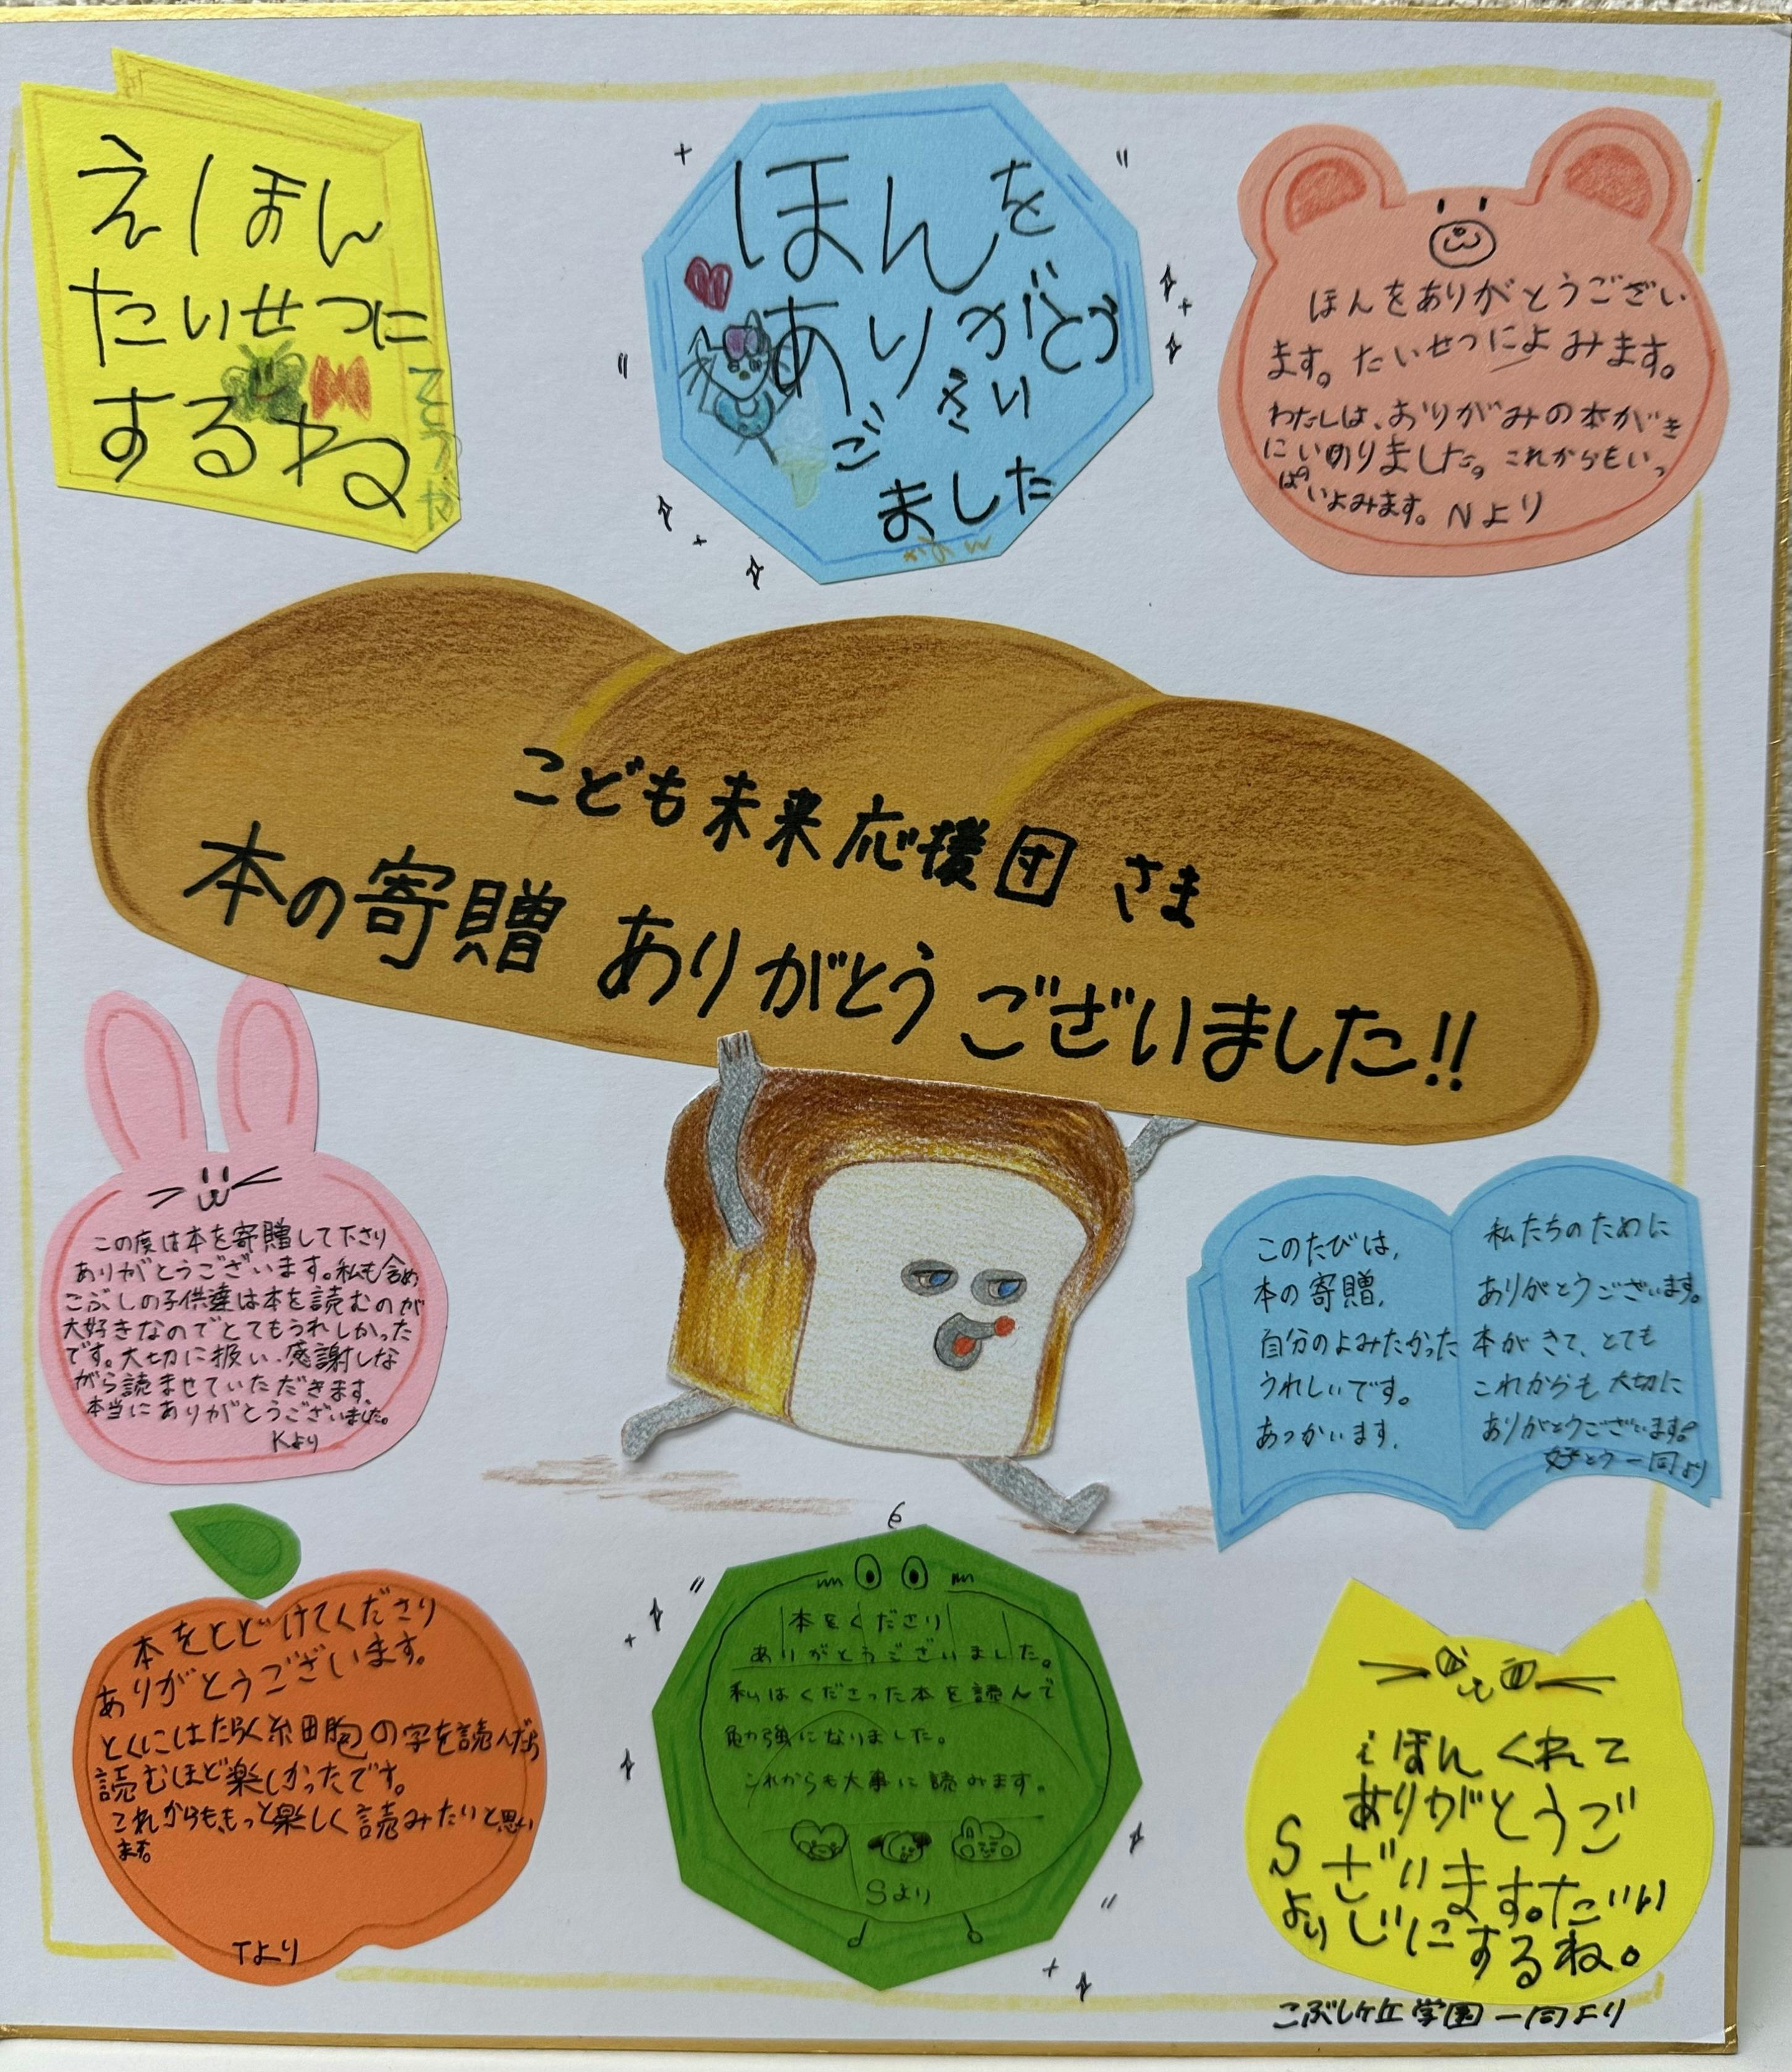 えほん
たいせつに
するね
ほんを
ありがとう
ござい
ました
ほんをありがとうござい
ます。たいせつによみます。
わたしは、おりがみの本がき
にいりました。これからもいっ
ぱいよみます。Nより
こども未来応援団 さま
本の寄贈 ありがとうございました!!
この度は本を寄贈して下さり
ありがとうございます。私も含め
こぶしの子供達は本を読むのが
大好きなのでとてもうれしかった
です。大切に扱い、感謝しな
がら読ませていただきます。
本当にありがとうございました。
Kより
このたびは、私たちのために
本の寄贈、ありがとうございます。
自分のよみたかった本がきて、とても
うれしいです。これからも大切に
あつかいます。ありがとうございます。
一同より
本をとどけてくださり
ありがとうございます。
とくにはたらく細胞の字を読んだら
読むほど楽しかったです。
これからももっと楽しく読みたいと思い
ます。
Tより
本をくださり
ありがとうございました。
私はくださった本を読んで
勉強になりました。
これからも大事に読みます。
Sより
えほんくれて
ありがとうご
ざいます。だい
じにするね。
Sより
こぶしヶ丘学園一同より